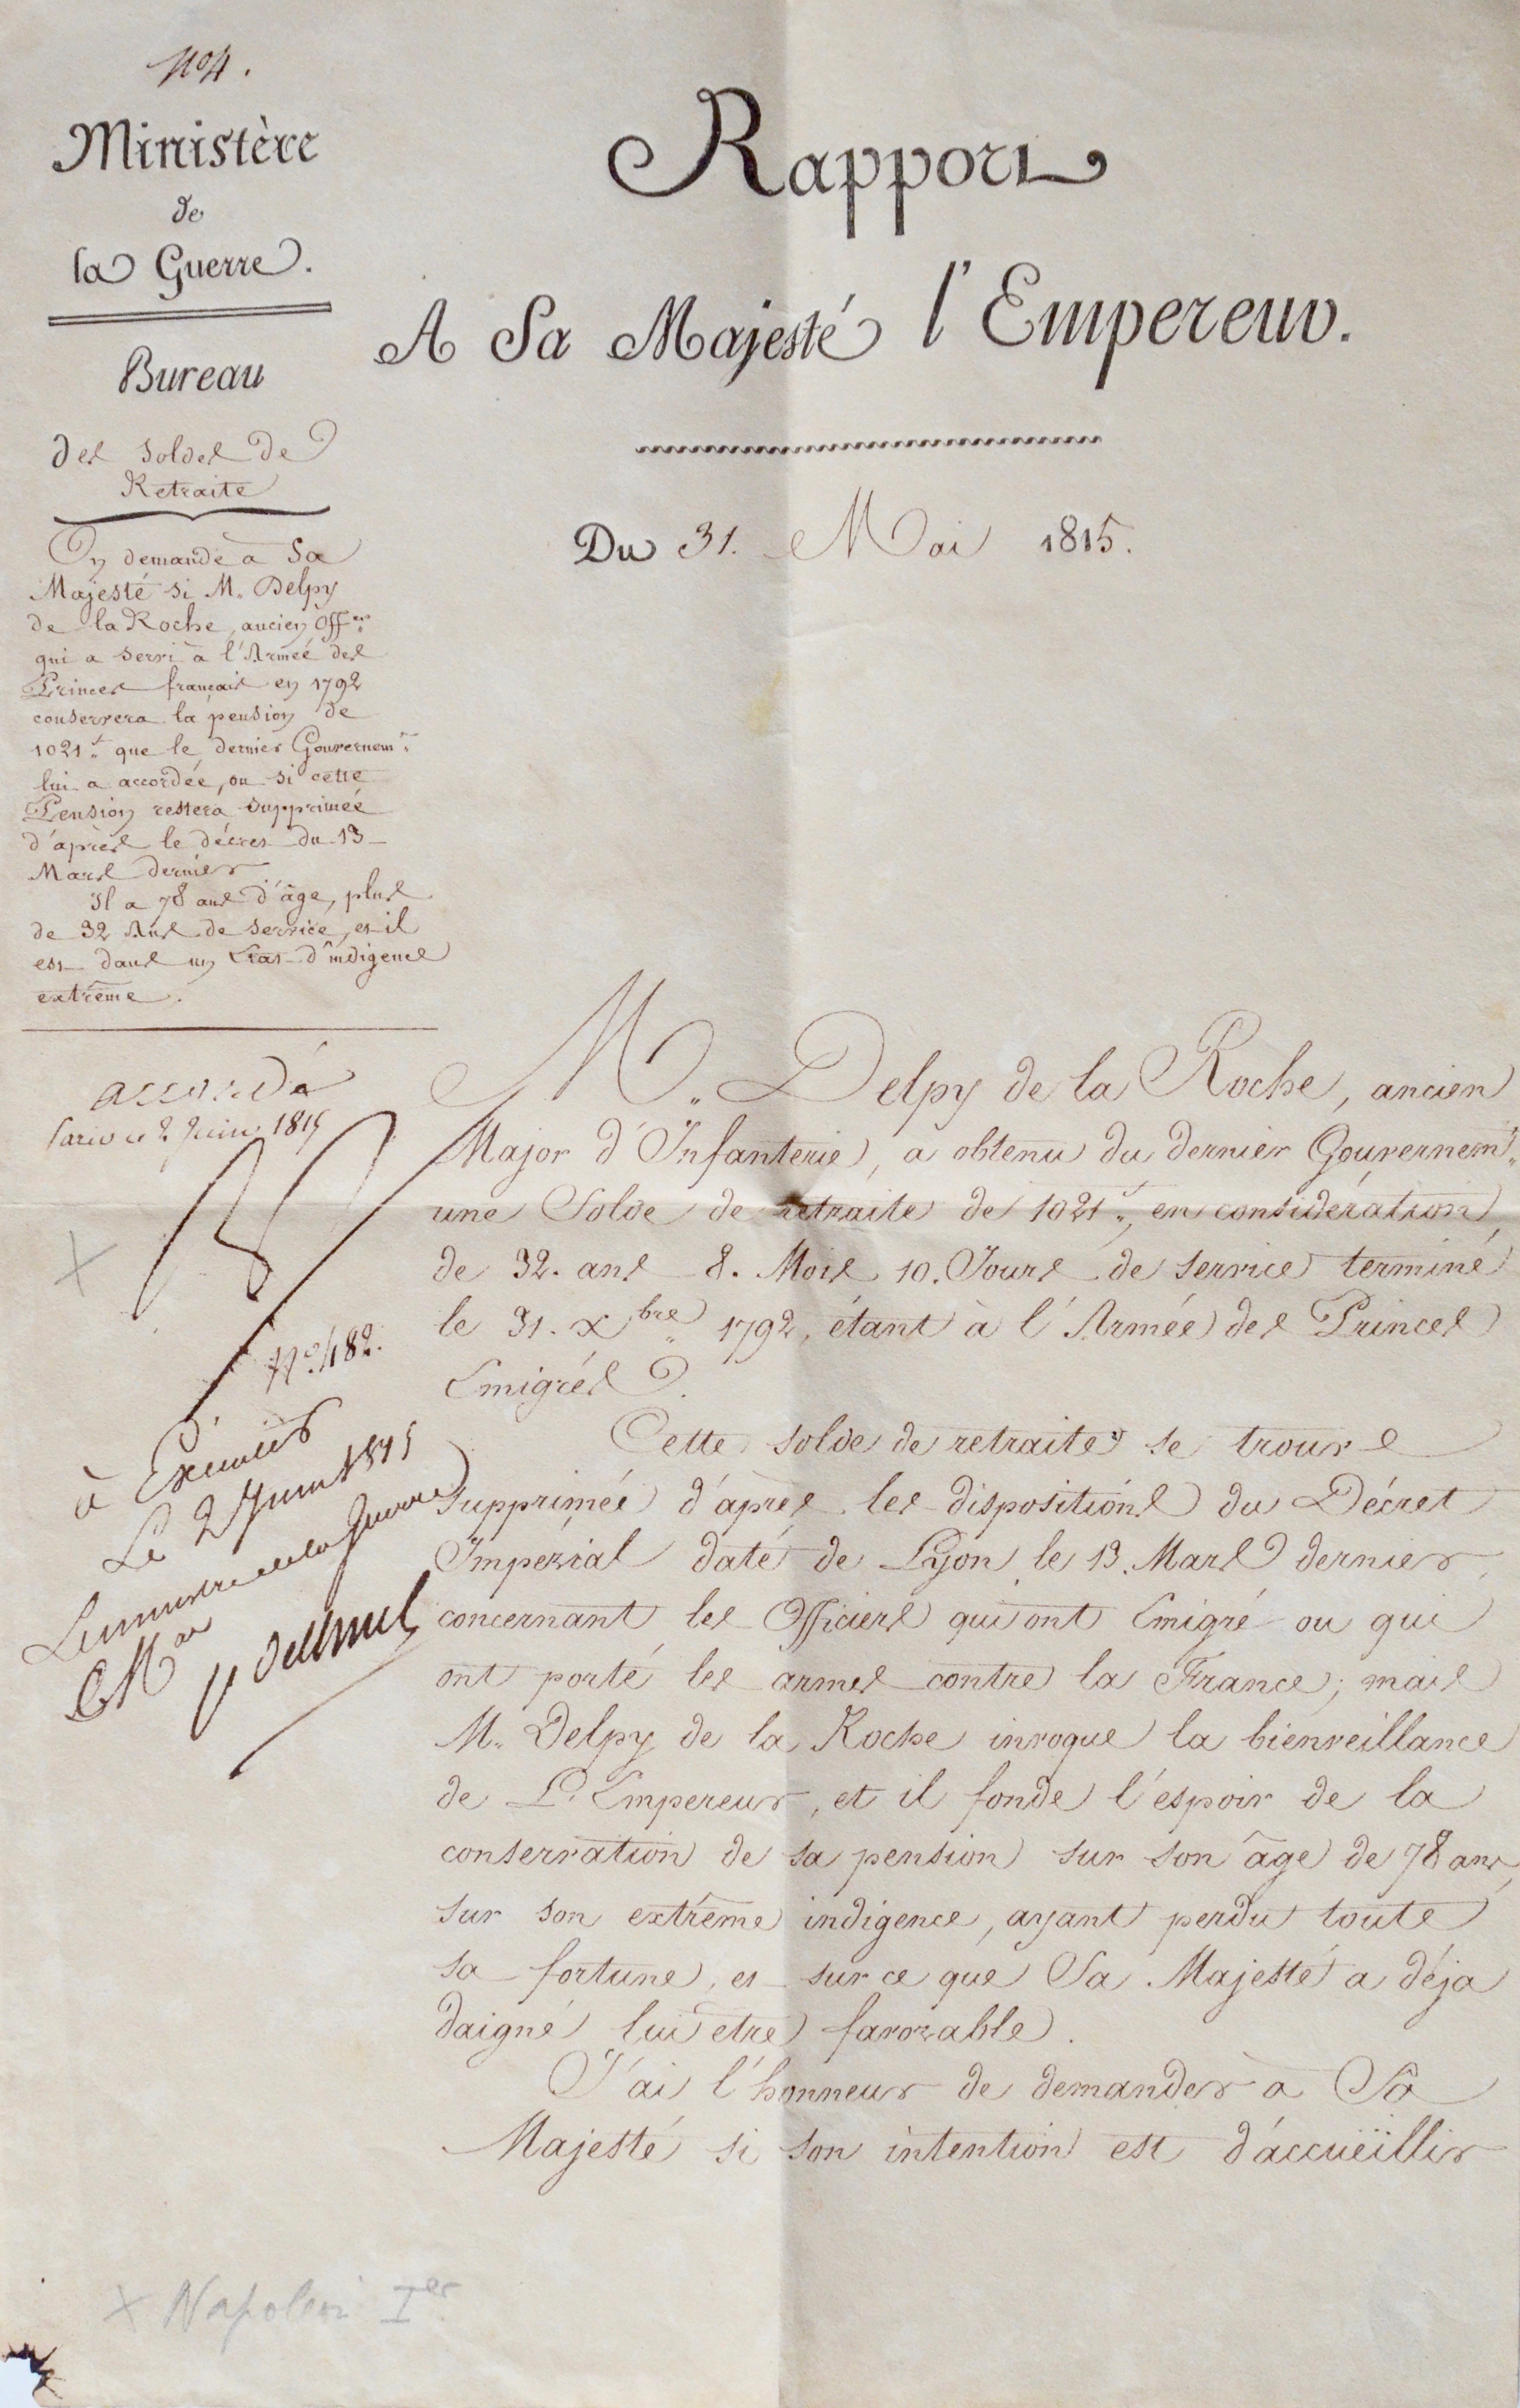 N.º 4.
Ministère
de
la Guerre.
Bureau
des Soldes de
Retraite
On demande à Sa
Majesté si M. Delpy
de la Roche, ancien Off.er
qui a servi à l'Armée des
Princes français en 1792
conservera la pension de
1021.f que le dernier Gouvernem.t
lui a accordée, ou si cette
Pension restera supprimée
d'après le décret du 13
Mars dernier
Il a 78 ans d'âge, plus
de 32 Ans de service, et il
est dans un Etat d'indigence
extrême.
accordé
Paris ce 2 Juin 1815
N.º 482.
à Exécuter
Le 2 Juin 1815
Le ministre de la guerre
M.al
Rapport
A Sa Majesté l'Empereur.
Du 31. Mai 1815.
M. Delpy de la Roche, ancien
Major d'Infanterie, a obtenu du dernier Gouvernem.t
une Solde de retraite de 1021.f, en considération
de 32. ans 8. Mois 10. Jours de service terminé
le 31. Xbre 1792, étant à l'Armée des Princes
Emigrés.
Cette solde de retraite se trouve
supprimée d'après les dispositions du Décret
Impérial daté de Lyon le 13. Mars dernier,
concernant les Officiers qui ont Emigré ou qui
ont porté les armes contre la France; mais
M. Delpy de la Roche invoque la bienveillance
de L'Empereur, et il fonde l'espoir de la
conservation de sa pension sur son âge de 78 ans,
sur son extrême indigence, ayant perdu toute
sa fortune, et sur ce que Sa Majesté a déja
daigné lui etre favorable.
J'ai l'honneur de demander à Sa
Majesté si son intention est d'accueillir
x Napoleon Ier